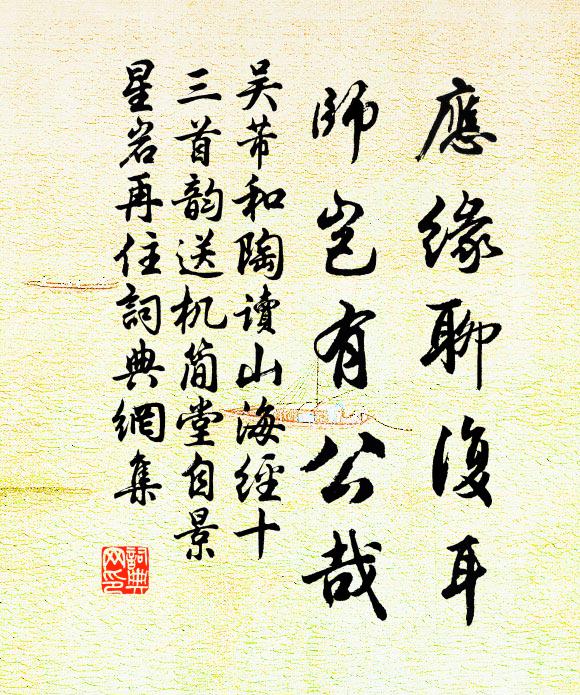 應緣聊復耳
師岂有公哉
吴芾和陶讀山海經十
三首韵送机简堂自景
星岩再住詞典網集
詞典网印